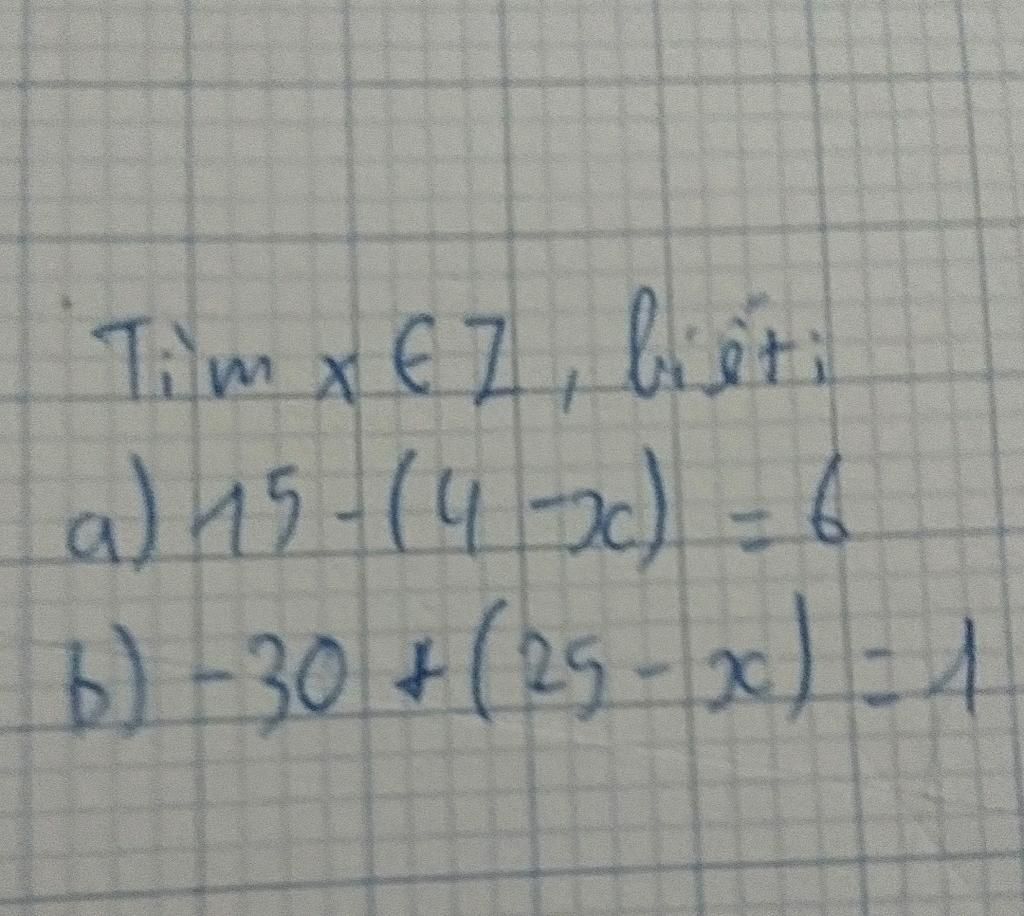 Tìm x ∈ Z, biết:
a) 15 - (4 - x) = 6
b) -30 + (25 - x) = 1